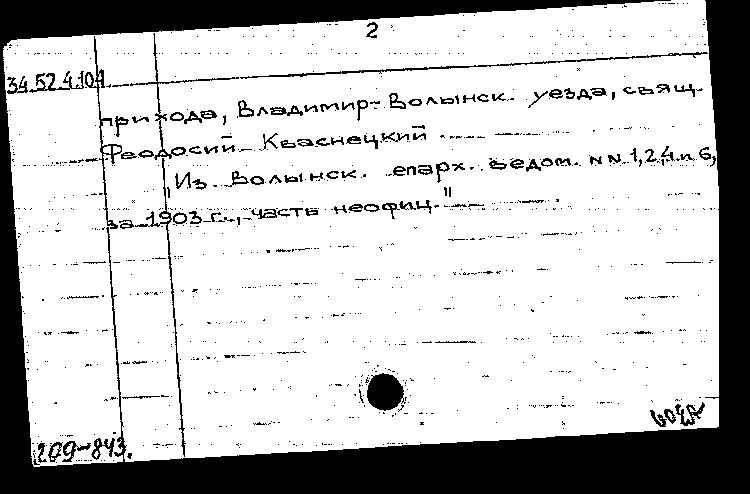 2
34.52.4.104
прихода, Владимир-Волынск. уезда, свящ.
Феодосий Кваснецкий
"Из Волынск. епарх. ведом. NN 1,2,4 и 6,
за 1903 г., часть неофиц."
209-843.